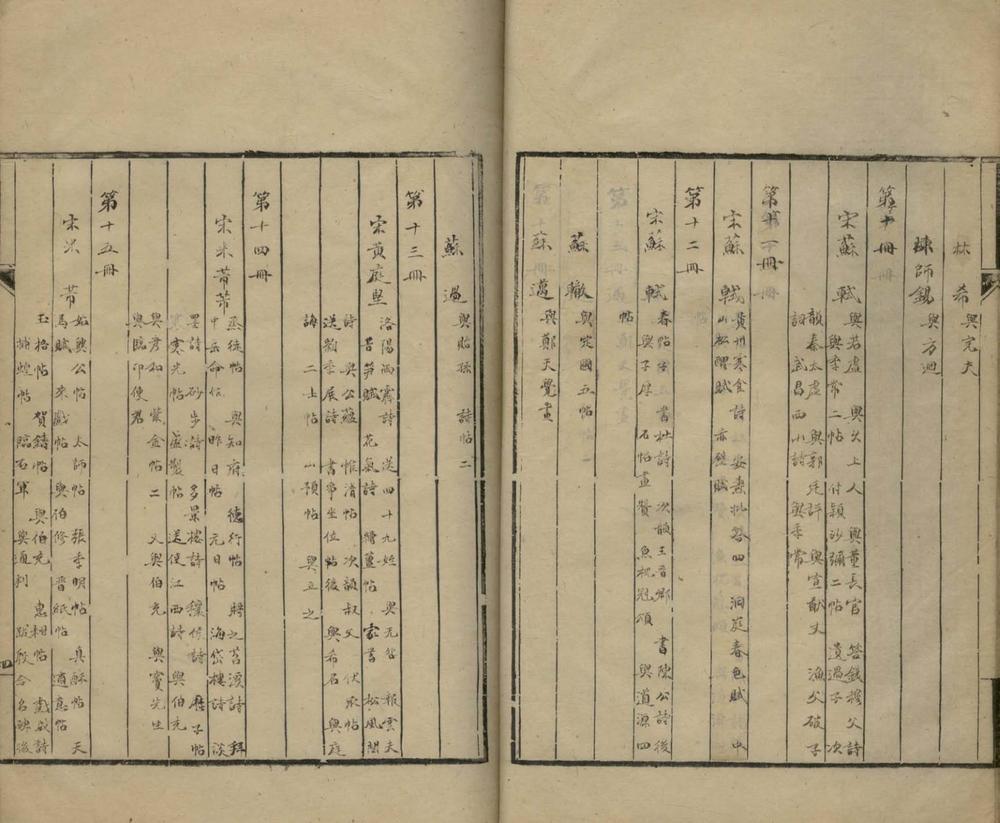 林希 與完夫
師錫 與方迴
第十冊
宋蘇軾 與若虛 與久上人 與董長官 答錢穆父詩
與季常二帖 付穎沙彌二帖 遺過子 次
韻秦太虛 與郭廷評 與宣猷丈 漁父破子
詞 武昌西山詩 與季常
第十一冊
宋蘇軾 黃州寒食詩 安素批答四 洞庭春色賦 中
山松醪賦 赤壁賦
第十二冊
宋蘇軾 春帖子 書杜詩 次韻王晉卿 書陳公詩後
與子厚 石帖畫贊 魚枕冠頌 與道源四
帖
蘇轍 與定國五帖
蘇邁 與鄭天覺畫
蘇過 與貽孫 詩帖二
第十三冊
宋黃庭堅 洛陽雨霽詩 送四十九姪 與无咎 報雲夫
苦筍賦 花氣詩 糟薑帖 家書 松風閣
詩 與公蘊 惟清帖 次韻叔父 伏承帖
送劉季展詩 書爭坐位帖後 與希召 與庭
誨 二士帖 山預帖 與立之
第十四冊
宋米芾 烝徒帖 與知府 德忱帖 將之苕溪詩 拜
中岳命位 昨日帖 元日帖 海岱樓詩 淡
墨詩 砂步詩 多景樓詩 穰侯詩 歷子帖
寒光帖 盛製帖 送使江西詩 與伯充
與彥和 紫金帖二 又與伯充 與竇先生
與臨印使君
第十五冊
宋米芾 如魏公帖 太師帖 張季明帖 真酥帖 天
馬賦 來戲帖 與伯修 晉紙帖 適意帖
玉格帖 賀鑄帖 與伯充 惠柑帖 戲成詩
捕蝗帖 臨右軍 與通判 跋殷令名碑後
四